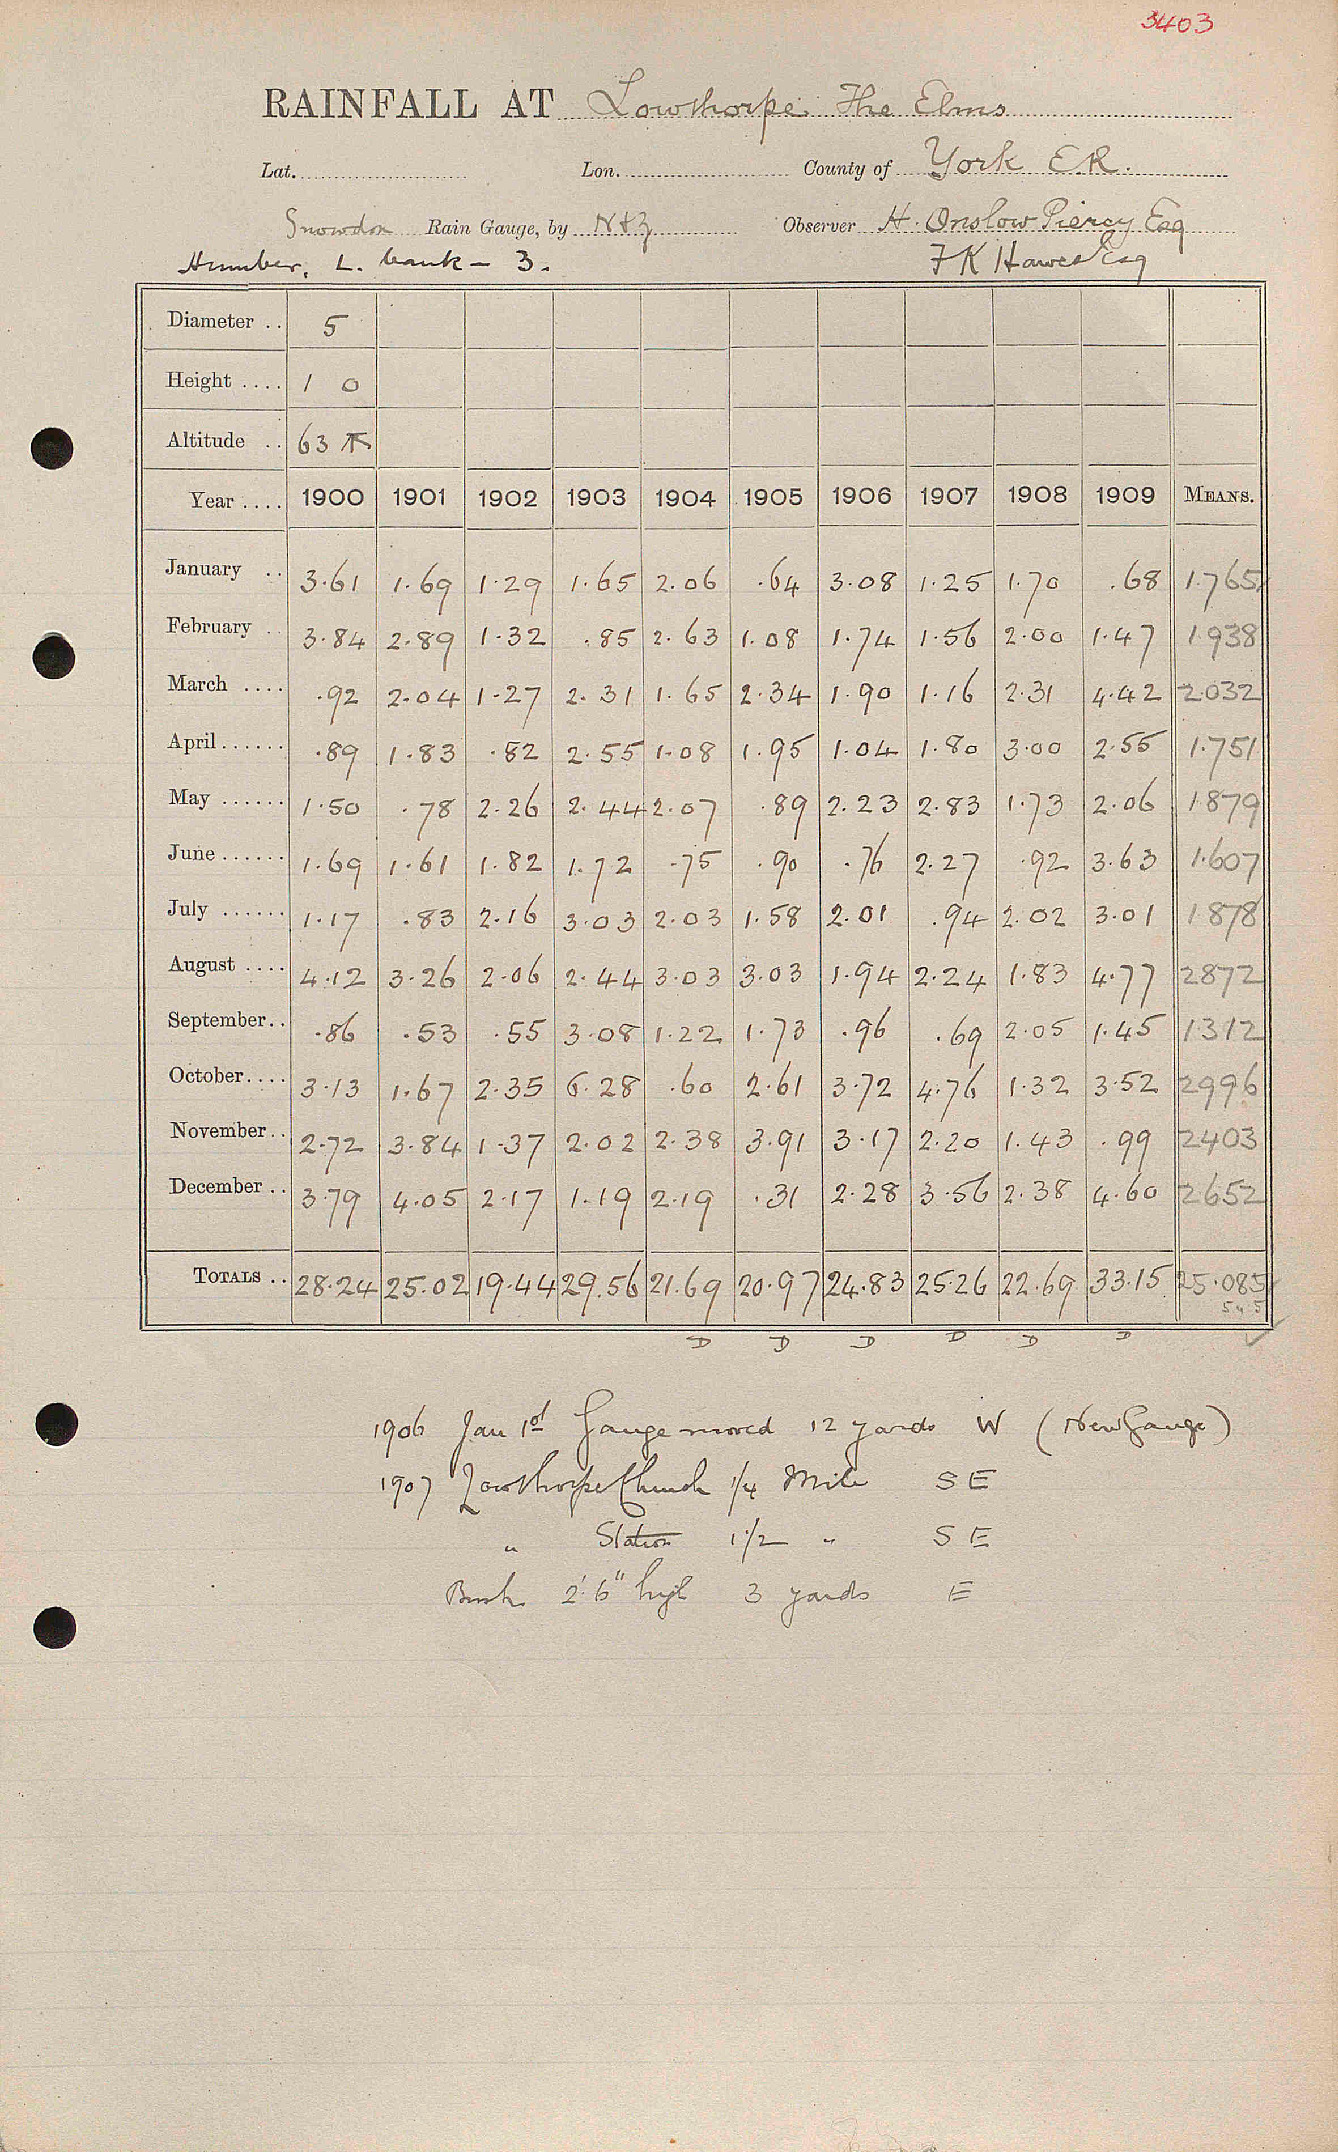 3403
RAINFALL AT Lowthorpe. The Elms
Lat. Lon. County of York E.R.
Snowdon Rain Gauge, by N & Z Observer H. Onslow Piercy Esq
Humber, L. bank - 3. F K Hawes Esq
Diameter .. 5
Height .... 1 0
Altitude .. 63
Year .... 1900 1901 1902 1903 1904 1905 1906 1907 1908 1909 MEANS.
January .. 3.61 1.69 1.29 1.65 2.06 .64 3.08 1.25 1.70 .68 1.765
February .. 3.84 2.89 1.32 .85 2.63 1.08 1.74 1.56 2.00 1.47 1.938
March .... .92 2.04 1.27 2.31 1.65 2.34 1.90 1.16 2.31 4.42 2.032
April ...... .89 1.83 .82 2.55 1.08 1.95 1.04 1.80 3.00 2.55 1.751
May ...... 1.50 .78 2.26 2.44 2.07 .89 2.23 2.83 1.73 2.06 1879
June ...... 1.69 1.61 1.82 1.72 .75 .90 .76 2.27 .92 3.63 1.607
July ...... 1.17 .83 2.16 3.03 2.03 1.58 2.01 .94 2.02 3.01 1878
August .... 4.12 3.26 2.06 2.44 3.03 3.03 1.94 2.24 1.83 4.77 2872
September.. .86 .53 .55 3.08 1.22 1.73 .96 .69 2.05 1.45 1312
October.... 3.13 1.67 2.35 6.28 .60 2.61 3.72 4.76 1.32 3.52 2996
November.. 2.72 3.84 1.37 2.02 2.38 3.91 3.17 2.20 1.43 .99 2403
December .. 3.79 4.05 2.17 1.19 2.19 .31 2.28 3.56 2.38 4.60 2652
TOTALS .. 28.24 25.02 19.44 29.56 21.69 20.97 24.83 25.26 22.69 33.15 25.085
D D D D D D
1906 Jan 1st Gauge moved 12 yards W (New Gauge)
1907 Lowthorpe Church 1/4 Mile S E
" Station 1 1/2 " S E
Bush 2' 6" high 3 yards E